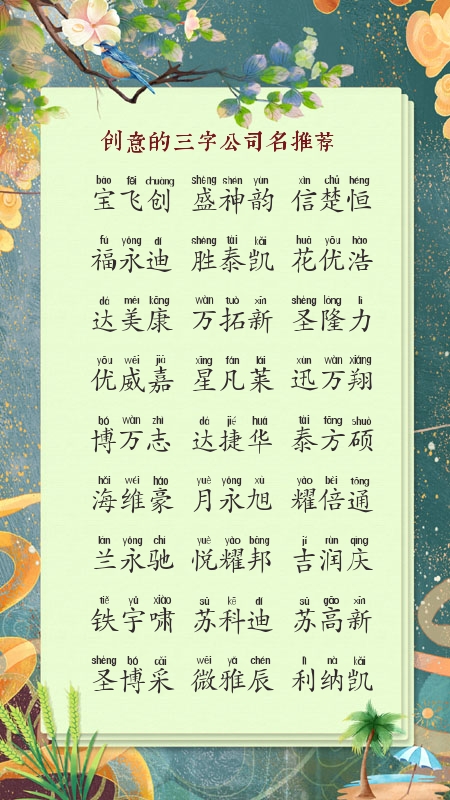 创意的三字公司名推荐
bǎo fēi chuàng shèng shén yùn xìn chǔ héng
宝飞创 盛神韵 信楚恒
fú yǒng dí shèng tài kǎi huā yōu hào
福永迪 胜泰凯 花优浩
dá měi kāng wàn tuò xīn shèng lóng lì
达美康 万拓新 圣隆力
yōu wēi jiā xīng fán lái xùn wàn xiáng
优威嘉 星凡莱 迅万翔
bó wàn zhì dá jié huá tài fāng shuò
博万志 达捷华 泰方硕
hǎi wéi háo yuè yǒng xù yào bèi tōng
海维豪 月永旭 耀倍通
lán yǒng chí yuè yào bāng jí rùn qìng
兰永驰 悦耀邦 吉润庆
tiě yǔ xiào sū kē dí sū gāo xīn
铁宇啸 苏科迪 苏高新
shèng bó cǎi wēi yǎ chén lì nà kǎi
圣博采 微雅辰 利纳凯